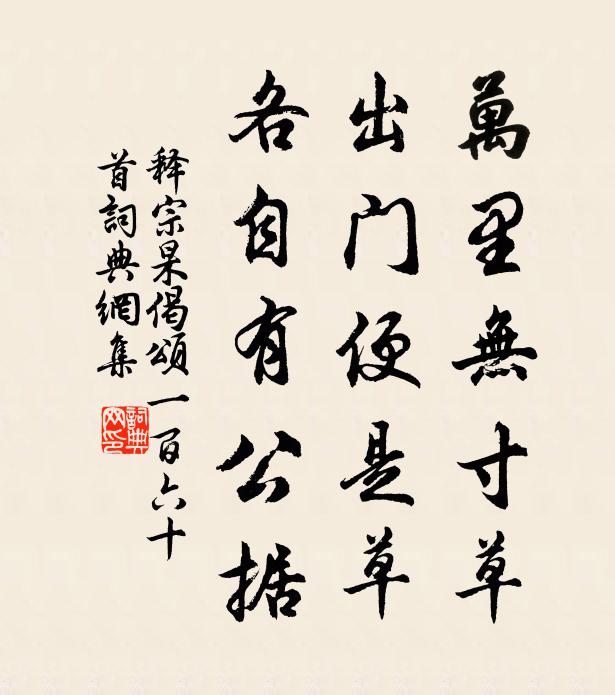 萬里無寸草
出门便是草
各自有公据
释宗杲偈頌一百六十
首詞典網集
詞典网印